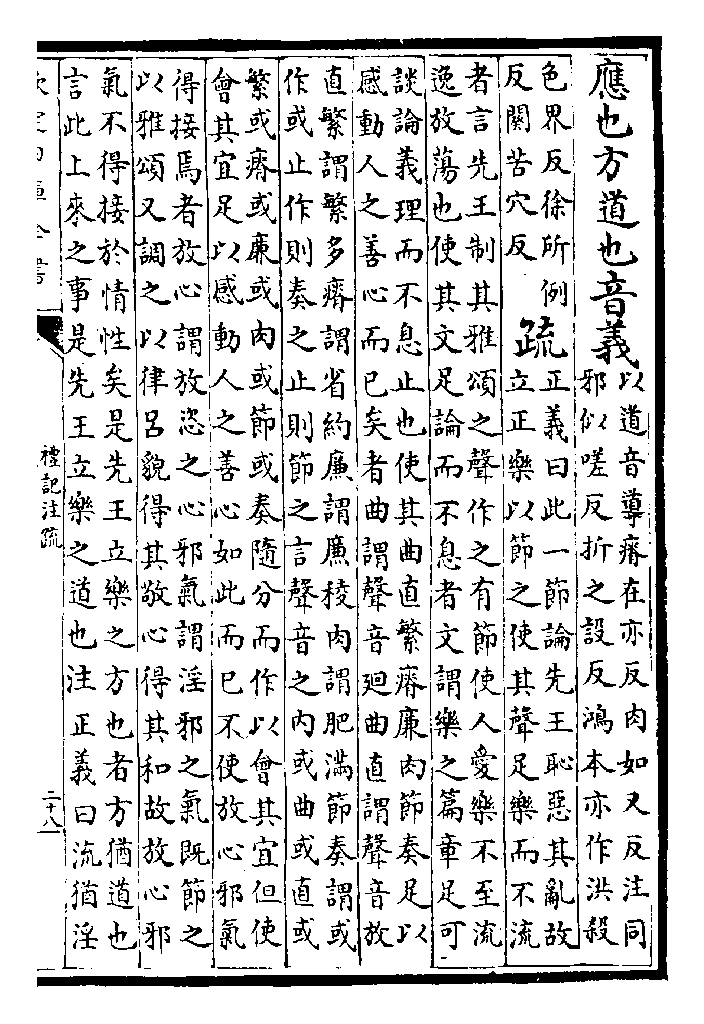 應也方道也音義
以道音導瘠在亦反肉如又反注同
邪似嗟反折之設反鴻本亦作洪殺
色界反徐所例
反闋苦穴反
疏
正義曰此一節論先王恥惡其亂故
立正樂以節之使其聲足樂而不流
者言先王制其雅頌之聲作之有節使人愛樂不至流
逸放蕩也使其文足論而不息者文謂樂之篇章足可
談論義理而不息止也使其曲直繁瘠廉肉節奏足以
感動人之善心而已矣者曲謂聲音廻曲直謂聲音放
直繁謂繁多瘠謂省約廉謂廉稜肉謂肥滿節奏謂或
作或止作則奏之止則節之言聲音之內或曲或直或
繁或瘠或廉或肉或節或奏隨分而作以會其宜但使
會其宜足以感動人之善心如此而已不使放心邪氣
得接焉者放心謂放恣之心邪氣謂淫邪之氣既節之
以雅頌又調之以律呂貌得其敬心得其和故放心邪
氣不得接於情性矣是先王立樂之方也者方猶道也
言此上來之事是先王立樂之道也注正義曰流猶淫
欽定四庫全書
禮記注疏
二十八